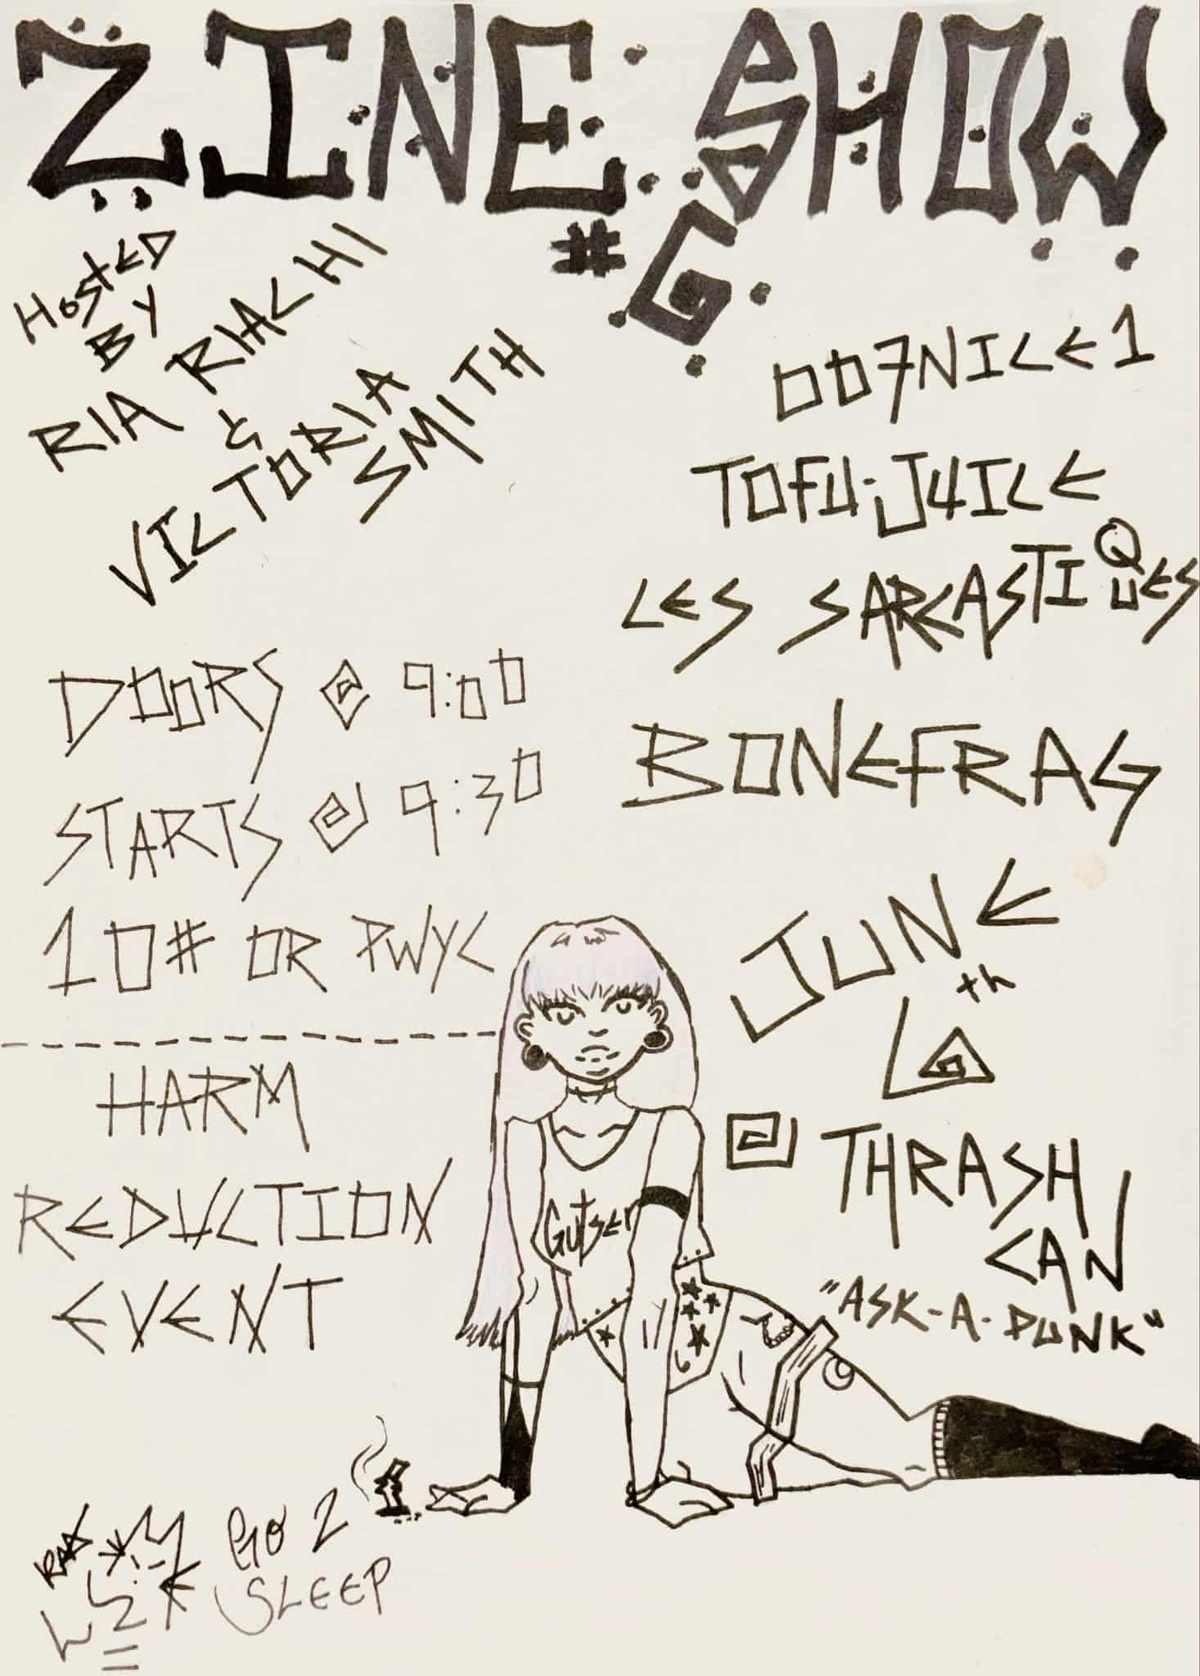 ZINE SHOW
#6
HOSTED
BY
RIA RIACHI
&
VICTORIA
SMITH
007NICE1
TOFU-JUICE
LES SARCASTIQUES
BONEFRAG
DOORS @ 9:00
STARTS @ 9:30
10# OR PWYC
HARM
REDUCTION
EVENT
JUNE
6th
@ THRASH
CAN
"ASK-A-PUNK"
GO 2
SLEEP